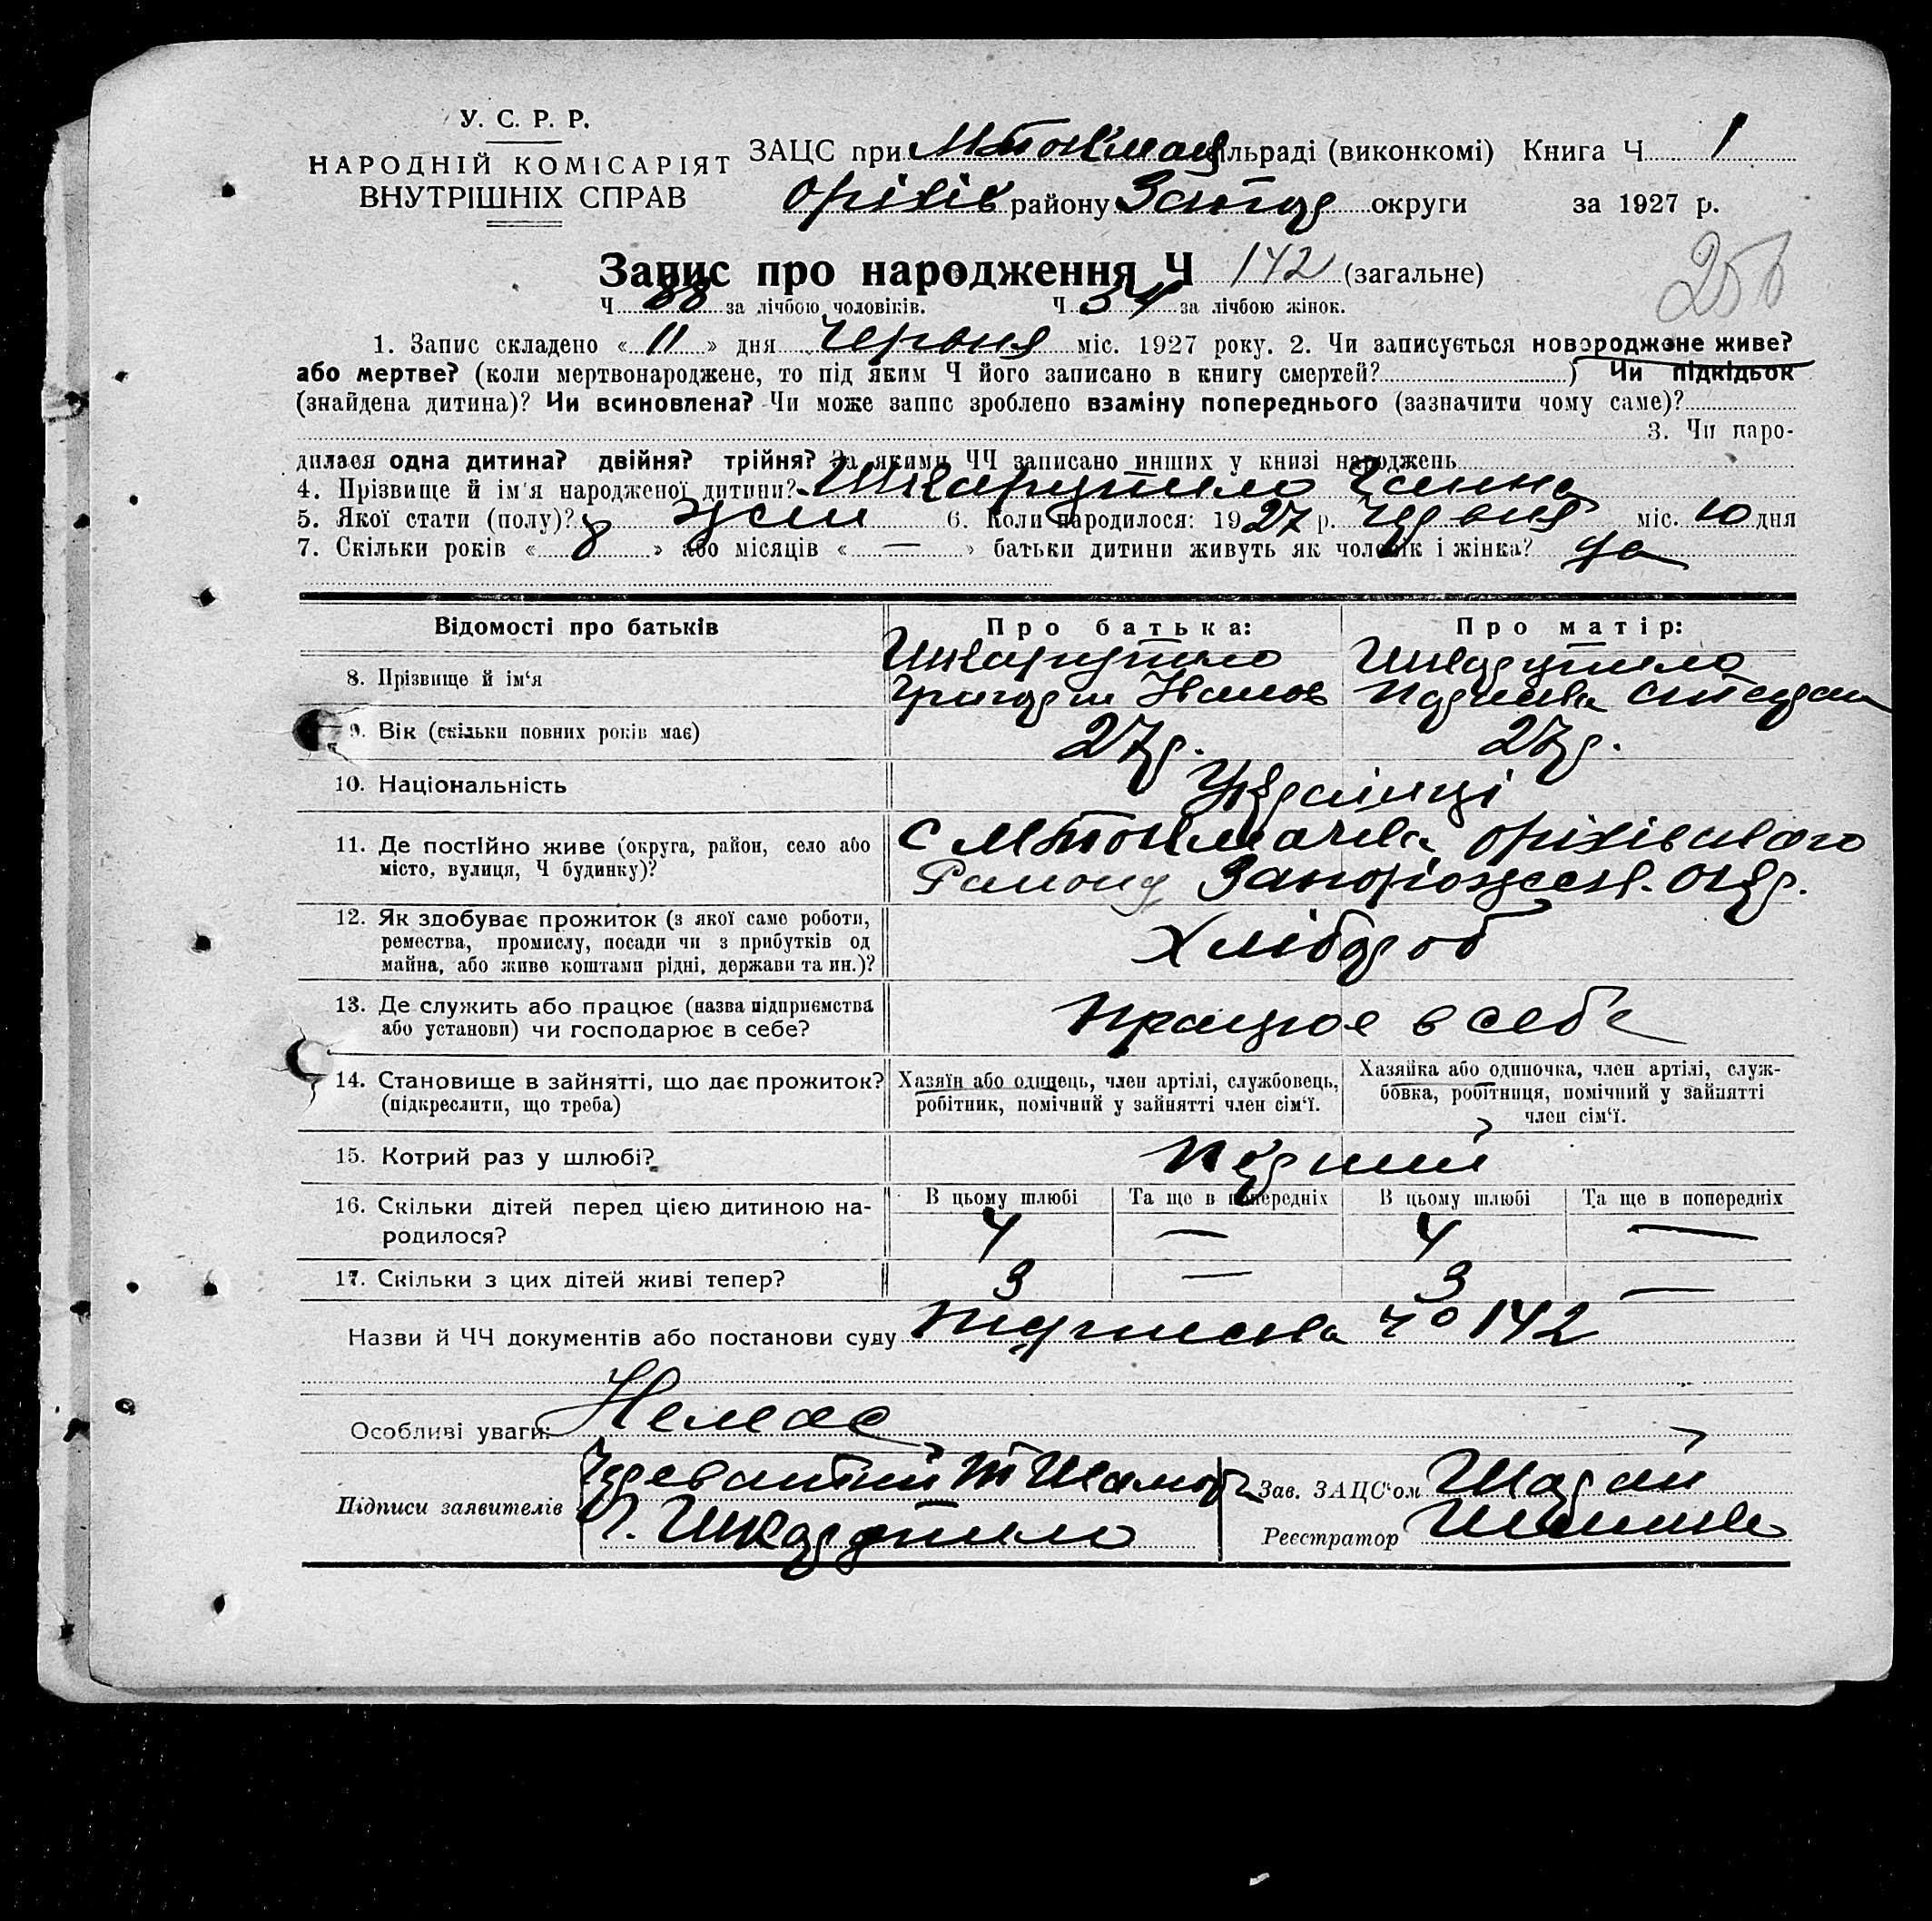 У. С. Р. Р.
НАРОДНІЙ КОМІСАРІЯТ
ВНУТРІШНІХ СПРАВ
ЗАЦС при М Токмац сільраді (виконкомі) Книга Ч 1
Оріхів району Запор округи за 1927 р.
Запис про народження Ч 142 (загальне)
256
Ч 88 за лічбою чоловіків. Ч 54 за лічбою жінок.
1. Запис складено « 11 » дня Червня міс. 1927 року. 2. Чи записується новороджене живе?
або мертве? (коли мертвонароджене, то під яким Ч його записано в книгу смертей? ) Чи підкідьок
(знайдена дитина)? Чи всиновлена? Чи може запис зроблено взаміну попереднього (зазначити чому саме)?
3. Чи наро-
дилася одна дитина? двійня? трійня? За якими ЧЧ записано инших у книзі народжень
4. Прізвище й ім'я народженої дитини? Шкарупило Ганна
5. Якої стати (полу)? жін 6. Коли народилося: 1927 р. Червня міс. 10 дня
7. Скільки років « 8 » або місяців « — » батьки дитини живуть як чоловік і жінка? да
Відомості про батьків Про батька: Про матір:
8. Прізвище й ім'я
Шкарупило Шкарупило
Григорій Іванов
9. Вік (скільки повних років має) 27р. 27р.
10. Національність Українці
11. Де постійно живе (округа, район, село або
місто, вулиця, Ч будинку)?
с М Токмачка Оріхівського
Району Запоріжськ. окр.
12. Як здобуває прожиток (з якої саме роботи,
ремества, промислу, посади чи з прибутків од
майна, або живе коштами рідні, держави та ин.)?
Хлібороб
13. Де служить або працює (назва підприємства
або установи) чи господарює в себе?
працює в себе
14. Становище в зайнятті, що дає прожиток?
(підкреслити, що треба)
Хазяїн або одинець, член артілі, службовець,
робітник, помічний у зайнятті член сім'ї.
Хазяйка або одиночка, член артілі, служ-
бовка, робітниця, помічний у зайнятті
член сім'ї.
15. Котрий раз у шлюбі? перший
16. Скільки дітей перед цією дитиною на-
родилося?
В цьому шлюбі Та ще в попередніх В цьому шлюбі Та ще в попередніх
4 — 4 —
17. Скільки з цих дітей живі тепер? 3 — 3 —
Назви й ЧЧ документів або постанови суду 142
Особливі уваги: Немає
Підписи заявителів
Шкарупило
Зав. ЗАЦС'ом
Реєстратор